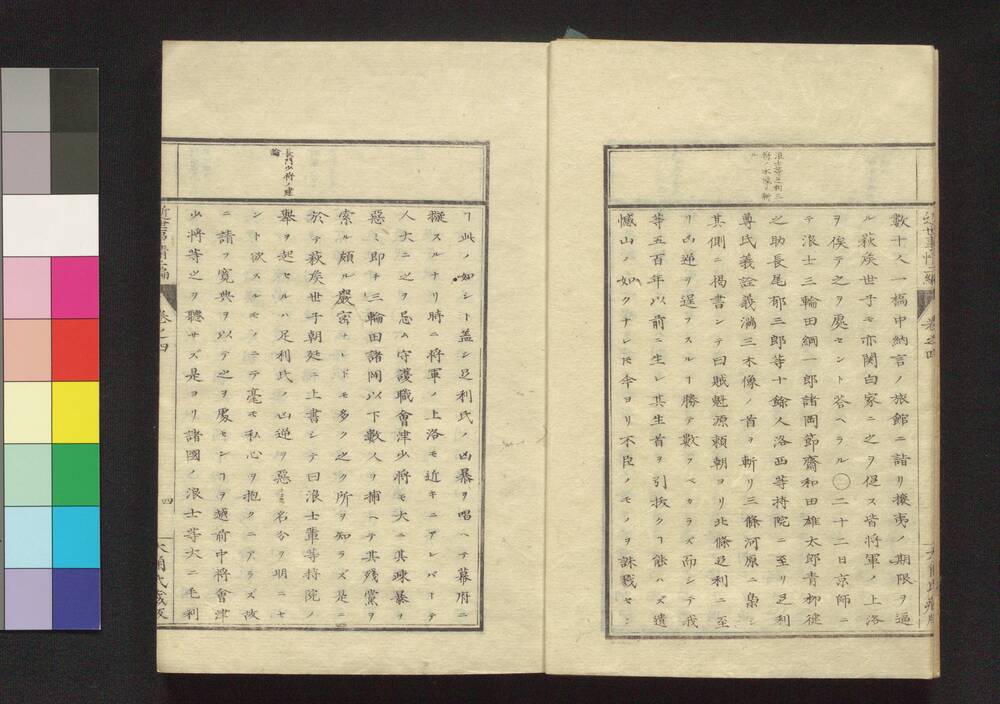 近世事情二編 巻之四
浪士等足利三
將ノ木像ヲ斬
ル
數十人一橋中納言ノ旅館ニ詣リ攘夷ノ期限ヲ逼
ル萩矦世子モ亦関白家ニ之ヲ促ス皆将軍ノ上洛
ヲ俟テ之ヲ處セント荅ヘラル〇二十二日京師ニ
テ浪士三輪田綱一郎諸岡節齋和田雄太郎青栁徤
之助長尾郁三郎等十餘人洛西等持院ニ至リ足利
尊氏義詮義満三木像ノ首ヲ斬リ三條河原ニ梟シ
其側ニ掲書シテ曰賊魁源頼朝ヨリ北條足利ニ至
リ凶逆ヲ逞ヲスルヿ勝テ數フベカラズ而シテ我
等五百年以前ニ生レ其生首ヲ引抜クヿ能ハズ遺
憾山ノ如クナレ𪜈今ヨリ不臣ノモノヲ誅戮セン
長門少将ノ建
論
ヿ此ノ如シト蓋シ足利氏ノ凶暴ヲ唱ヘテ幕府ニ
擬スルナリ時ニ将軍ノ上洛モ近キニアレバ一テ
人大ニ之ヲ忌ム守護職會津少将モ大ニ其疎暴ヲ
惡ミ即チ三輪田諸岡以下數人ヲ捕ヘテ其残黨ヲ
索ル頗ル嚴密ナレドモ多ク之ク所ヲ知ラズ是ニ
於テ萩矦世子朝廷ニ上書シテ曰浪士輩等持院ノ
舉ヲ起セルハ足利氏ノ凶逆ヲ惡ミ名分ヲ明ニセ
ント欲スルモノニテ毫モ私心ヲ抱クニアラズ故
ニ請フ寛典ヲ以テ之ヲ處センヿヲ越前中将會津
少将等之ヲ聴サズ是ヨリ諸國ノ浪士等大ニ毛利
近世事情二編 巻之四 四